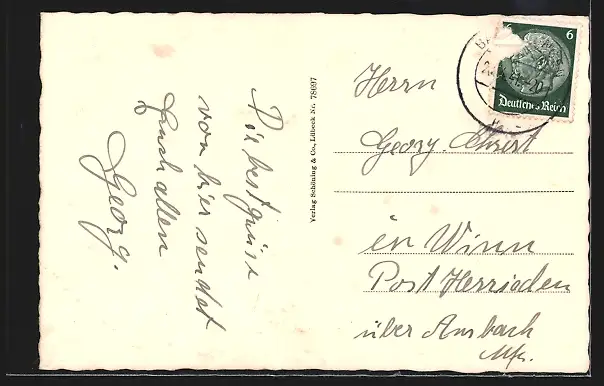 Die best grüße
von hier sendet
Euch allen
Georg.
Verlag Schöning & Co., Lübeck Nr. 78697
6
Deutsches Reich
Herrn
Georg Ehrert
in Winn
Post Herrieden
über Ansbach
Mfr.